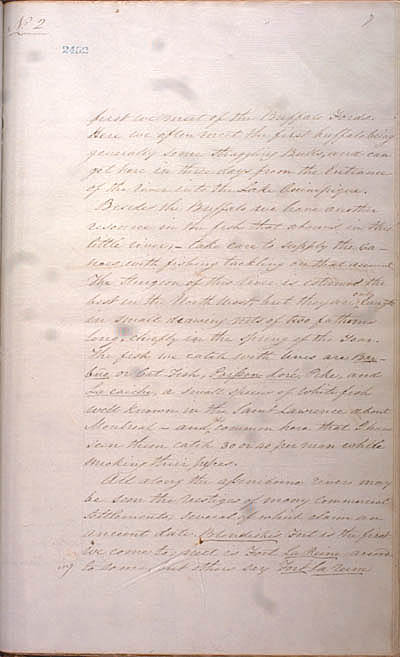 No 2
2492
first we meet of the Buffalo Fords.
Here we often meet the first buffalo being
generally some straggling Bulls, and can
get here in three days from the entrance
of the river into the Lake Ouinipique.
Besides the Buffalo we have another
resource in the fish that abound in this
little river, – take care to supply the Ca-
noes with fishing tackling on that account.
The Sturgeon of this river is esteemed the
best in the North West but they are
in small drawing nets of two fathoms
long, chiefly in the spring of the Year.
The fish we catch with lines are Bar-
bue or Cat Fish, Poisson doré, Pike, and
La caiche, a small species of white fish
well known in the Saint Lawrence about
Montreal – and so common here that I have
seen them catch 30 or 40 per man while
smoking their pipes.
All along the Assenidoine river may
be seen the vestiges of many commercial
settlements, several of which claim an
ancient date. Blondishes Fort is the first
we come to, next is Fort La Reine accord
ing to some, but others say Fort La Reine